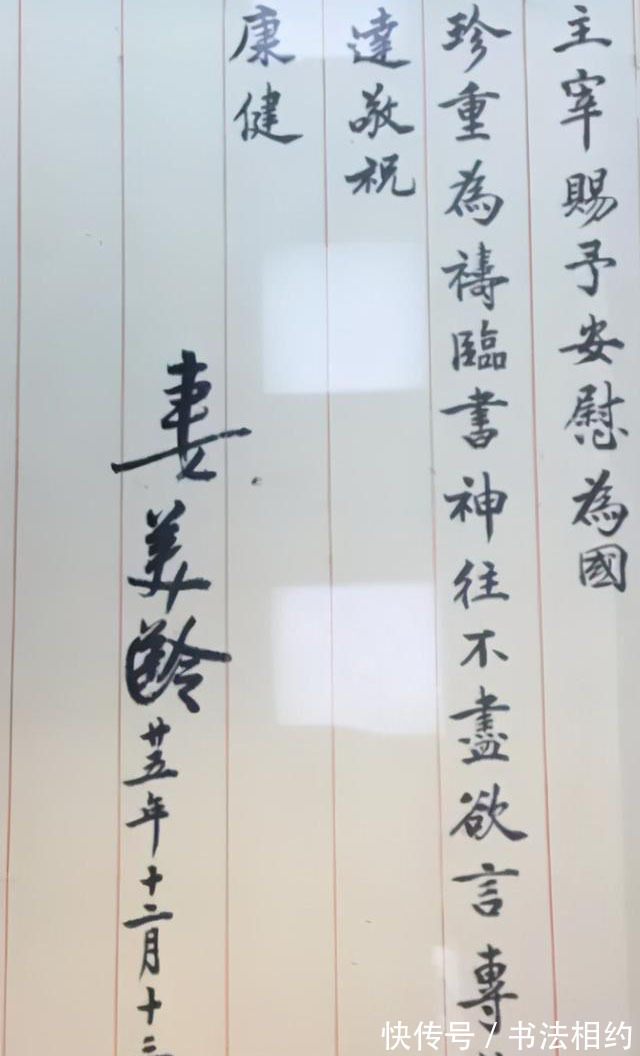 主宰賜予安慰為國
珍重為禱臨書神往不盡欲言專
達敬祝
康健
妻美齡
廿五年十二月十三
快传号 / 书法相约